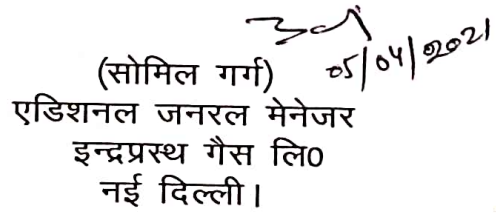 05/04/2021
(सोमिल गर्ग)
एडिशनल जनरल मेनेजर
इन्द्रप्रस्थ गैस लि0
नई दिल्ली।